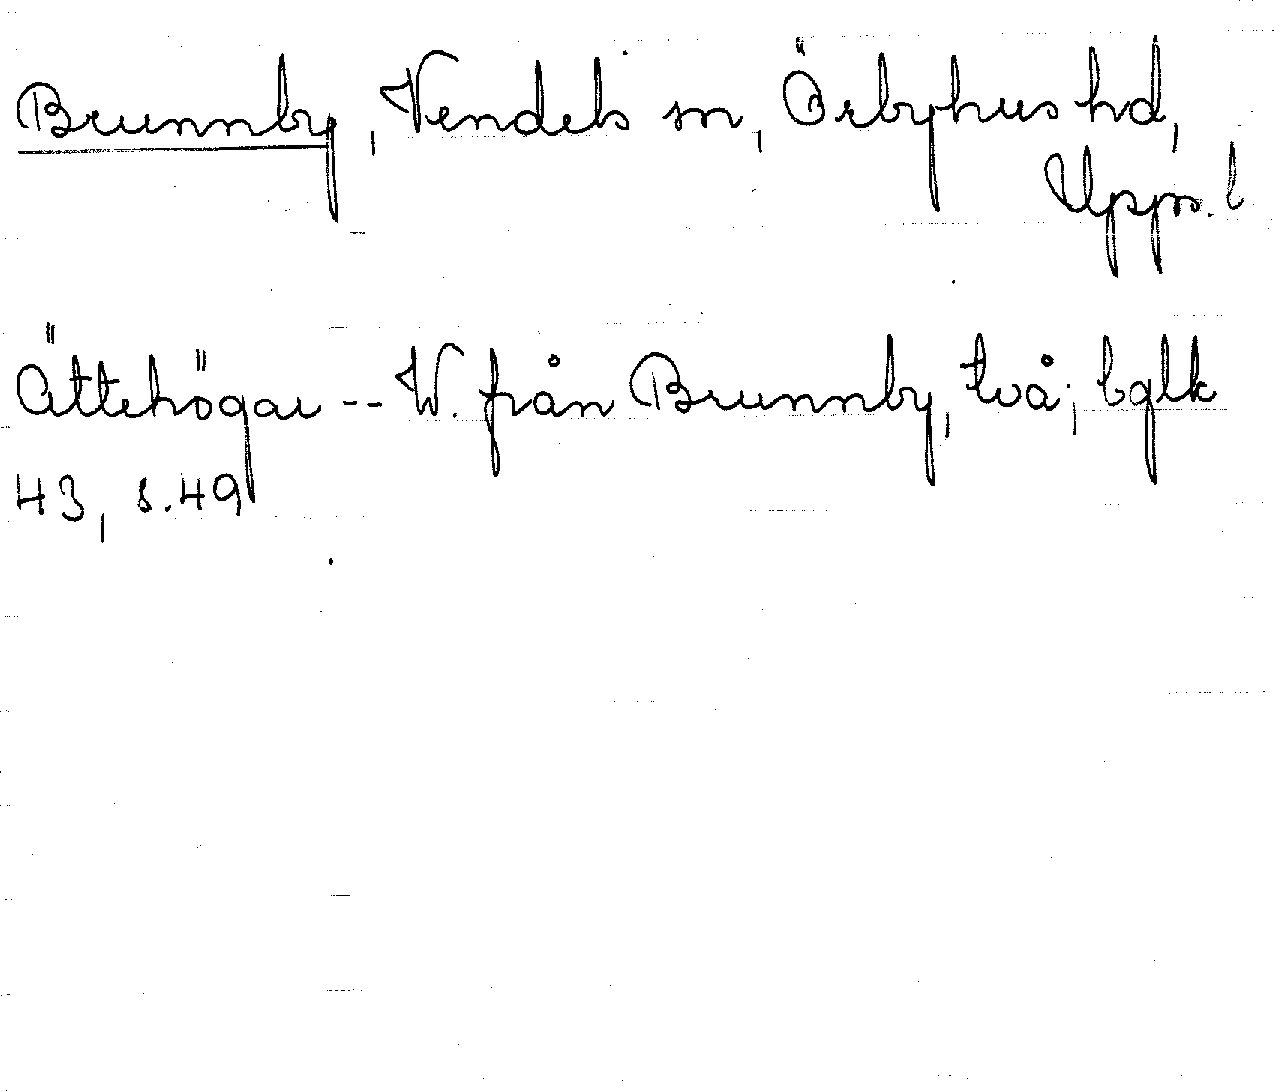 Brunnby, Vendels sn, Örbyhus hd,
Upps. l
Ättehögar -- W. från Brunnby, två; bglk
43, s. 49